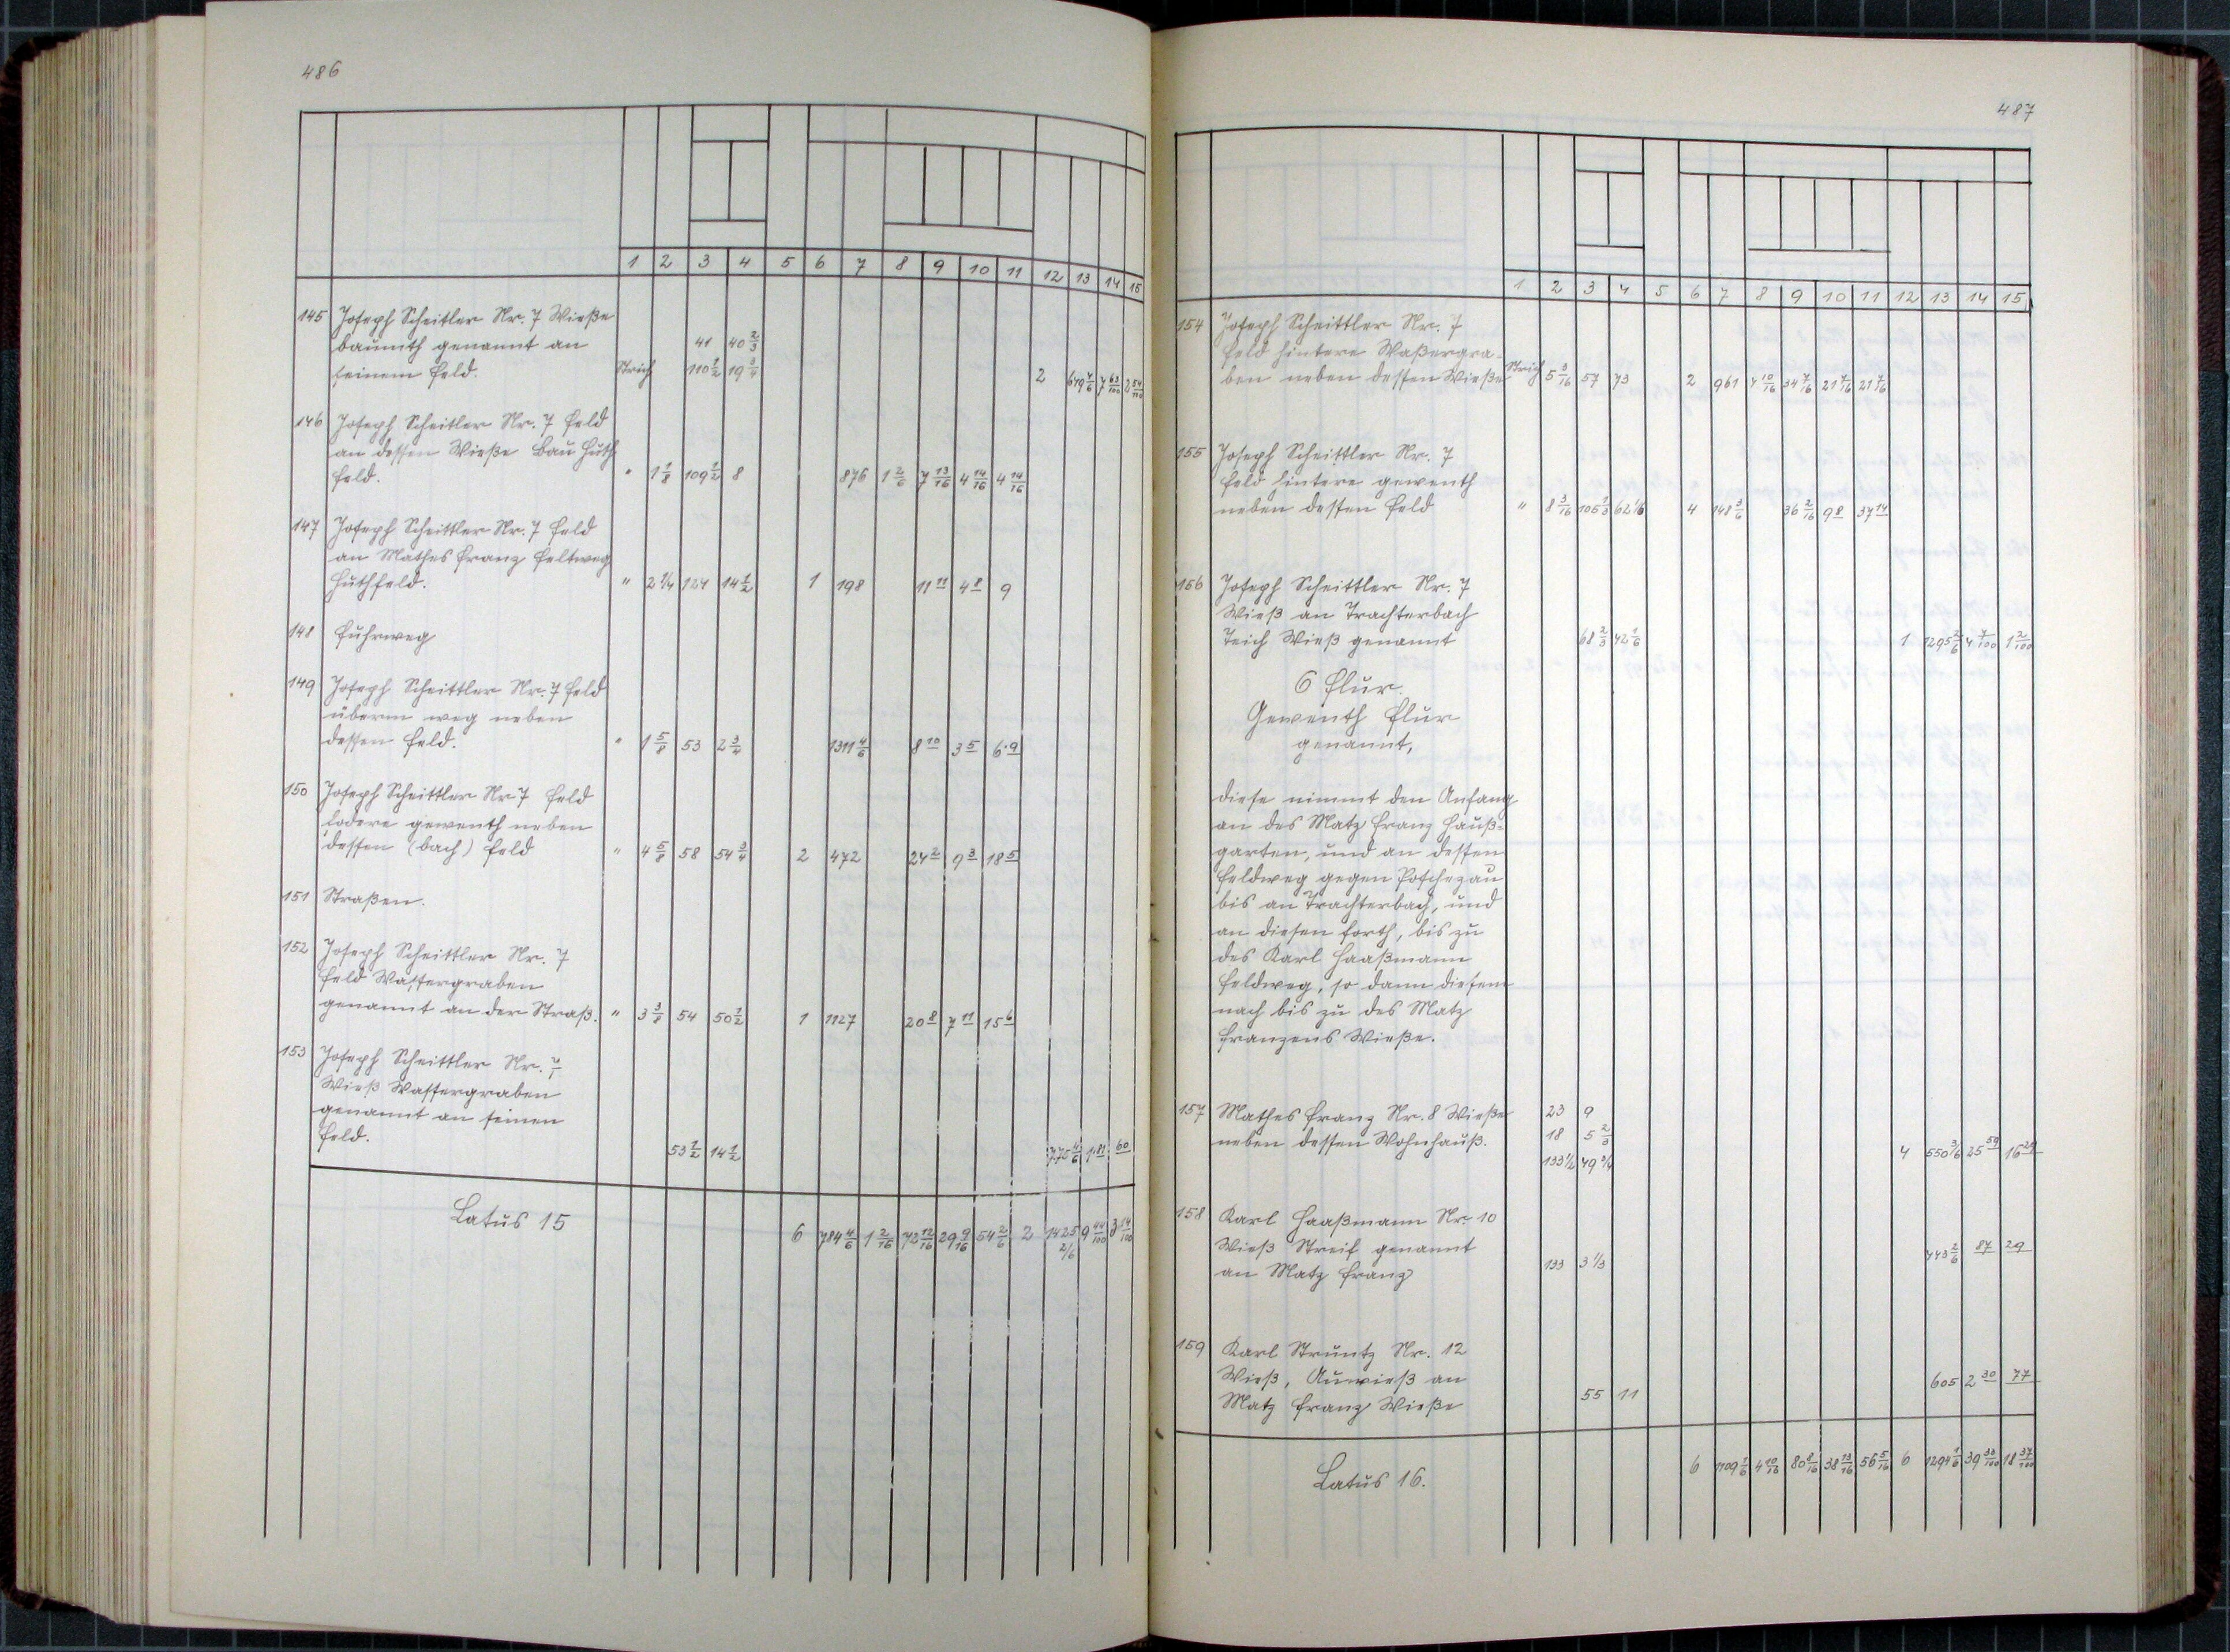 486
1 2 3 4 5 6 7 8 9 10 11 12 13 14 15
145 Joseph Scheitler Nr. 7 Wieße
baumth genannt an 41 40 2/3
seinem Feld. Strich 110 1/2 19 3/4 2 649 4/6 7 63/100 2 54/100
146 Joseph Scheitler Nr. 7 Feld
an dessen Wieße Bau Huth
Feld. " 1 1/8 109 1/2 8 876 1 2/6 7 13/16 4 14/16 4 14/16
147 Joseph Scheittler Nr. 7 Feld
an Mathes Franz Feltweg
Huthfeld. " 2 1/4 124 14 1/2 1 198 11 11 4 8 9
148 Fuhrweg
149 Joseph Scheittler Nr. 7 Feld
überm weg neben
dessen Feld. " 1 5/8 53 2 3/4 1311 4/6 8 10 3 5 6 9
150 Joseph Scheittler Nr 7 Feld
lodere gewenth neben
dessen (bach) Feld " 4 5/8 58 54 3/4 2 472 24 2 9 3 18 5
151 Straßen.
152 Joseph Scheittler Nr. 7
Feld Wassergraben
genannt an der Straß. " 3 3/8 54 50 1/2 1 1127 20 8 7 11 15 6
153 Joseph Scheittler Nr. 7
Wieß Wassergraben
genannt an seinen
Feld. 53 1/2 14 1/2 775 4/6 1 81 60
Latus 15 6 784 4/6 1 2/16 72 12/16 29 9/16 54 2/6 2 1425 2/6 9 44/100 3 14/100
487
1 2 3 4 5 6 7 8 9 10 11 12 13 14 15
154 Joseph Scheittler Nr. 7
Feld hintere Waßergra-
ben neben dessen Wieße Strich 5 3/16 57 73 2 961 4 10/16 34 7/16 21 7/16 21 7/16
155 Joseph Scheittler Nr. 7
Feld hintere gewenth
neben dessen Feld " 8 3/16 105 1/3 62 1/6 4 148 3/6 36 2/16 9 8 37 14
156 Joseph Scheittler Nr. 7
Wieß an Trachterbach
Teich Wieß genannt 68 2/3 42 1/6 1 1295 2/6 4 7/100 1 2/100
6 Flur.
Gewenth Flur
genannt,
diese nimmt den Anfang
an des Matz Franz Hauß-
garten, und an dessen
Feldweg gegen Poschezau
bis an Trachterbach, und
an diesen forth, bis zu
des Karl Haaßmann
Feldweg, so dann diesem
nach bis zu des Matz
Franzens Wieße.
157 Mathes Franz Nr. 8 Wieße 23 9
neben dessen Wohnhauß. 18 5 2/3 4 550 3/6 25 59 16 29
133 1/2 49 3/4
158 Karl Haaßmann Nr. 10
Wieß Streif genannt 443 2/6 87 29
an Matz Franz 133 3 1/3
159 Karl Struntz Nr. 12
Wieß, Auwieß an 605 2 30 77
Matz Franz Wieße 55 11
Latus 16. 6 1109 3/6 4 10/16 80 8/16 38 13/16 56 5/16 6 1294 1/6 39 33/100 18 37/100